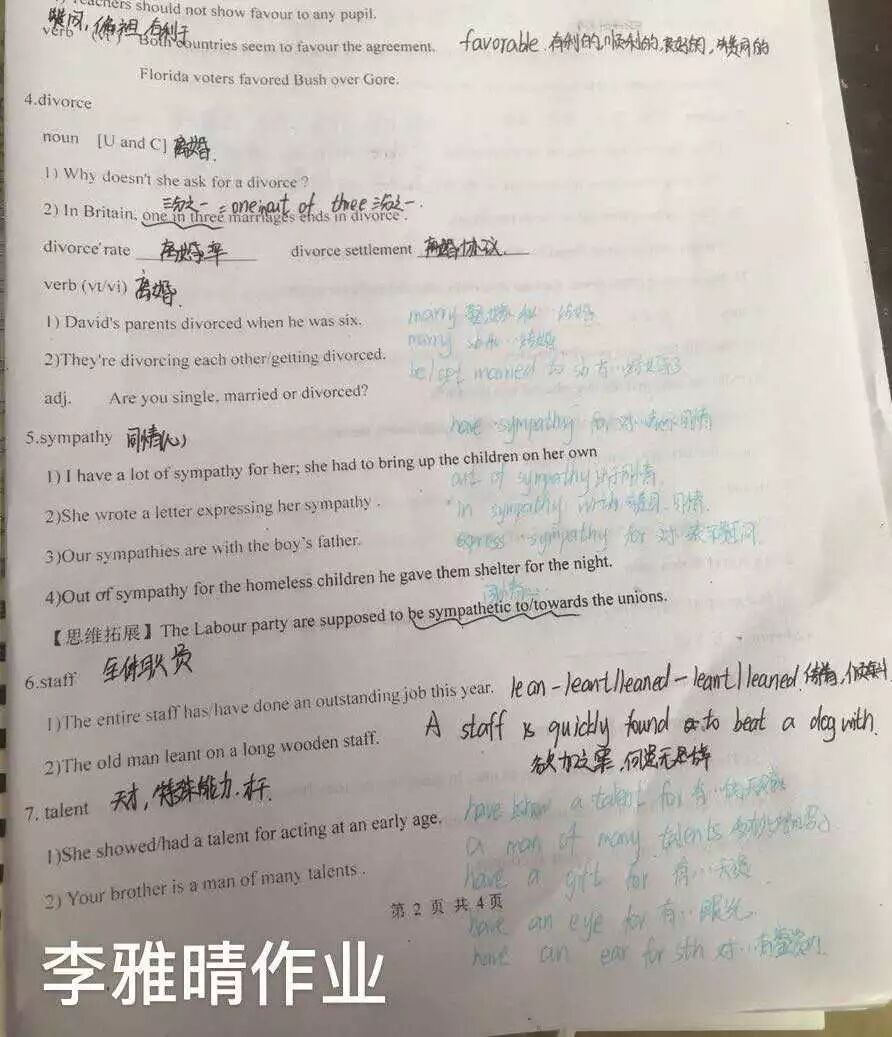 Teachers should not show favour to any pupil.
verb Both countries seem to favour the agreement. favorable. 有利的,顺利的,良好的,赞同的
赞同,偏袒,有利于
Florida voters favored Bush over Gore.
4.divorce
noun [U and C] 离婚.
1) Why doesn't she ask for a divorce ?
三分之一 = one out of three 三分之一.
2) In Britain, one in three marriages ends in divorce .
divorce rate 离婚率 divorce settlement 离婚协议.
verb (vt/vi) 离婚.
1) David's parents divorced when he was six. marry 结婚
2)They're divorcing each other/getting divorced. marry sb 结婚
be/get married to sb
adj. Are you single, married or divorced?
have sympathy for 对 表示同情
5.sympathy 同情(心)
1) I have a lot of sympathy for her; she had to bring up the children on her own
out of sympathy 出于同情.
2)She wrote a letter expressing her sympathy . in sympathy with 赞同.同情.
3)Our sympathies are with the boy's father. express sympathy for 对 表示慰问.
4)Out of sympathy for the homeless children he gave them shelter for the night.
【思维拓展】The Labour party are supposed to be sympathetic to/towards the unions.
6.staff 全体职员
1)The entire staff has/have done an outstanding job this year. lean-leant/leaned-leant/leaned.倚靠,倾斜
2)The old man leant on a long wooden staff. A staff is quickly found to beat a dog with.
欲加之罪,何患无辞
7. talent 天才,特殊能力.才干.
have show a talent for 有
1)She showed/had a talent for acting at an early age. a man of many talents
2) Your brother is a man of many talents . have a gift for 有 天赏
第 2 页 共 4 页
have an eye for 有 眼光.
have an ear for sth 对
李雅晴作业